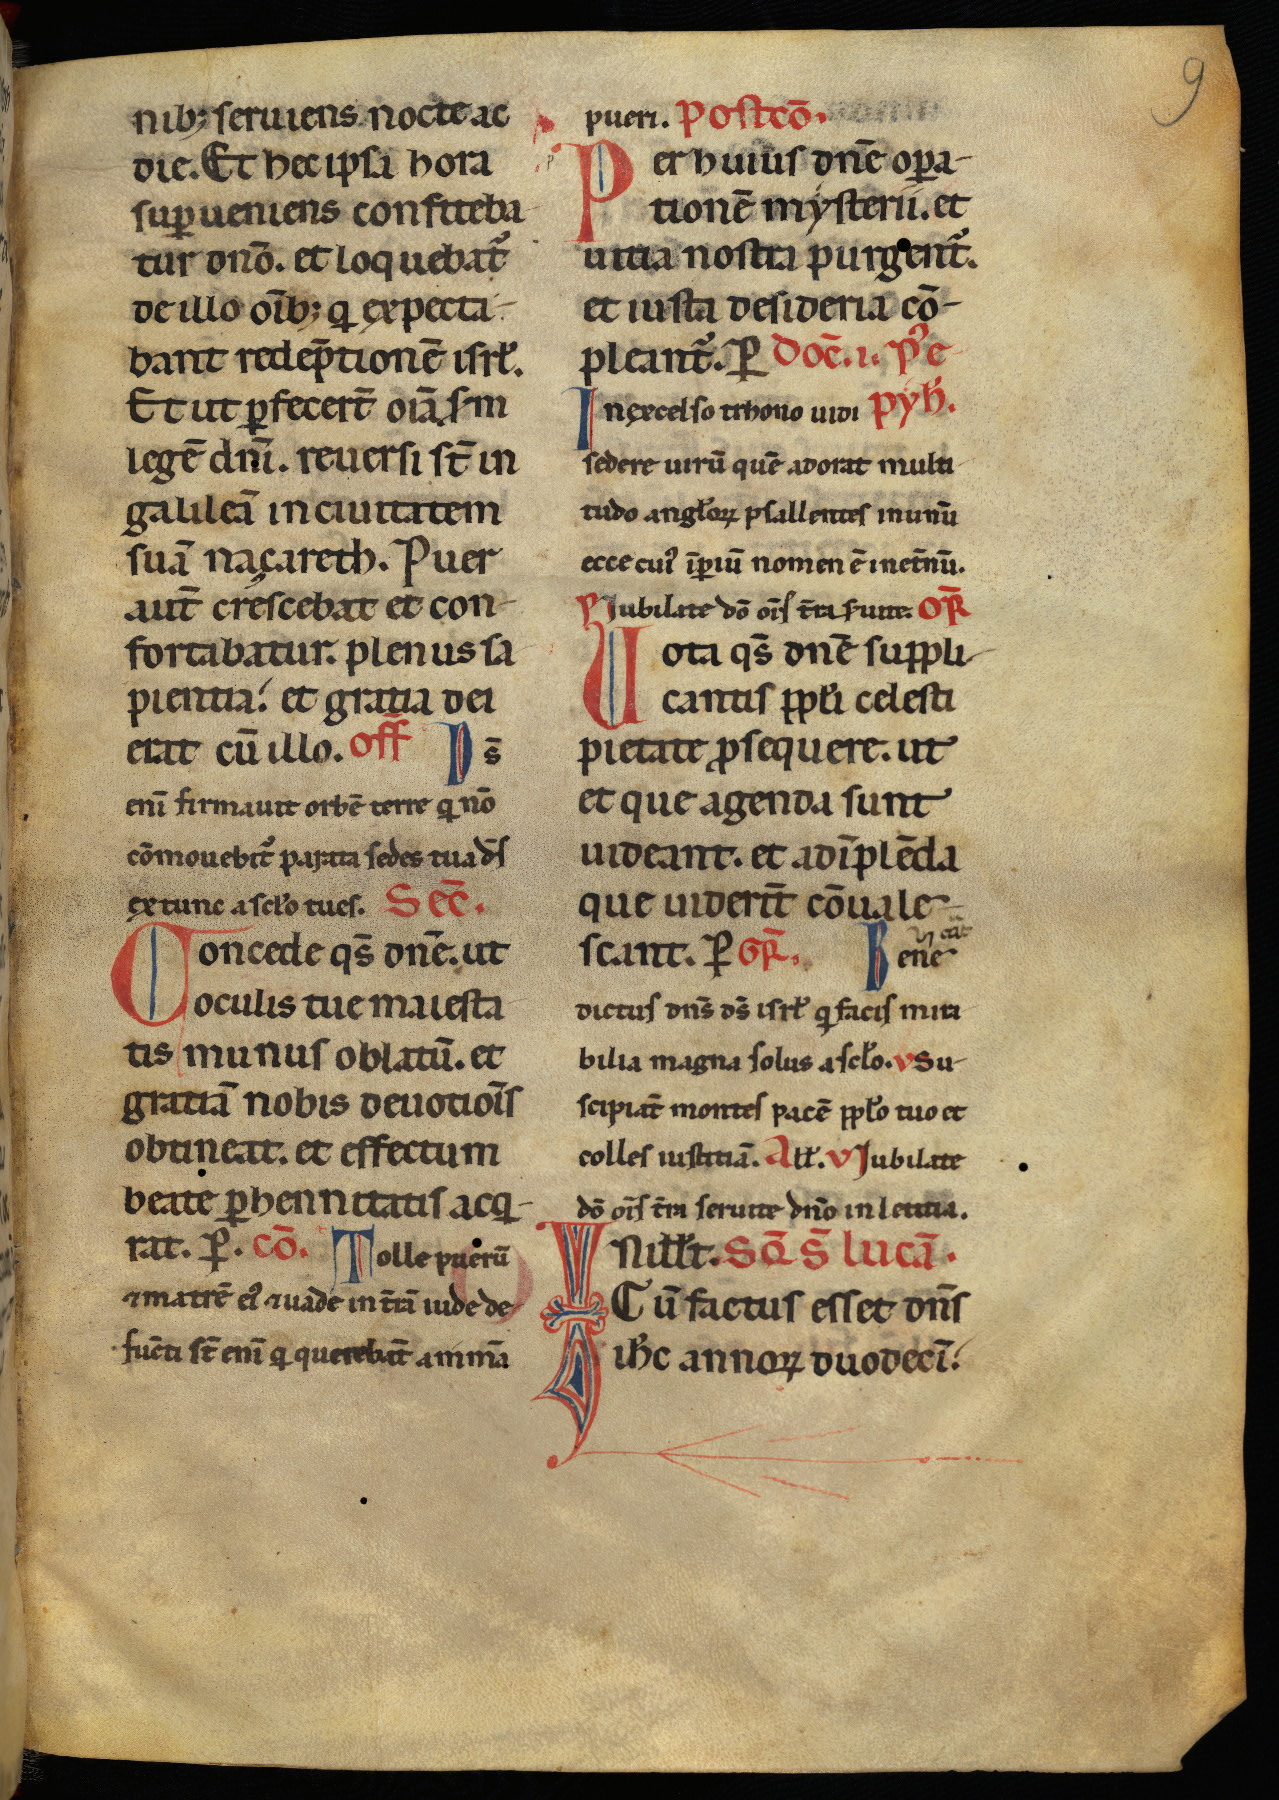 9
nib; seruiens nocte ac
die. Et hec ipsa hora
suꝑueniens confiteba
tur dnō. et loquebat᷑
de illo oīb; q̇ expecta-
bant redēptionē isrl̄.
Et ut ꝑfecerт̄ oīa sm
legē dnī. reuersi st̄ in
galileā in ciuitatem
suā naçareth. Puer
aut̄ crescebat et con-
fortabatur. plenus sa-
pientia. et gratia dei
erat cū illo. Off Ds̄
eni firmauit orbē terre q̇ nō
cōmouebit᷑ parata sedes tua ds̄
ex tunc a sclo tu es. Sec̄.
Concede qs̄ dnē. ut
oculis tue maiesta
tis munus oblatū. et
gratiā nobis deuotiōis
obtineat. et effectum
beate ꝑhennitatis acq-
rat. P̄. cō. Tolle puerū
⁊ matrē ei᷒ ⁊ uade in t̄rā iude de
fūcti st̄ enī q̇ querebāt animā
pueri. Postcō.
Per huius dnē oꝑa-
tionē mysterii. et
uitia nostra purgent᷑.
et iusta desideria cō-
pleant᷑. P̄ Doc̄. i. p᷒ e
In excelso trhono uidi pyh̄.
sedere uirū quē adorat multi
tudo anglo℞ psallentes in unū
ecce cui᷒ īꝑiū nomen ē in et̄nū.
Ps̄ Iubilate dō oīs t̄ra ṡuite. Or̄
Uota qs̄ dnē suppli-
cantis ppl̄i celesti
pietate ꝓsequere. ut
et que agenda sunt
uideant. et adīplēda
que uiderīt cōuale-
scant. P̄ Gr̄. Bene
dictus dns̄ ds̄ isrl̄ q̇ facis mira
bilia magna solus a sclo. v Su-
scipiāt montes pacē ppl̄o tuo et
colles iustitiā. All̄. v Iubilate
dō oīs t̄ra seruite dn̄o in letitia.
In illt̄. Sq̄ s̄ lucā.
Cū factus esset dns̄
ih̄c anno℞ duodecī.